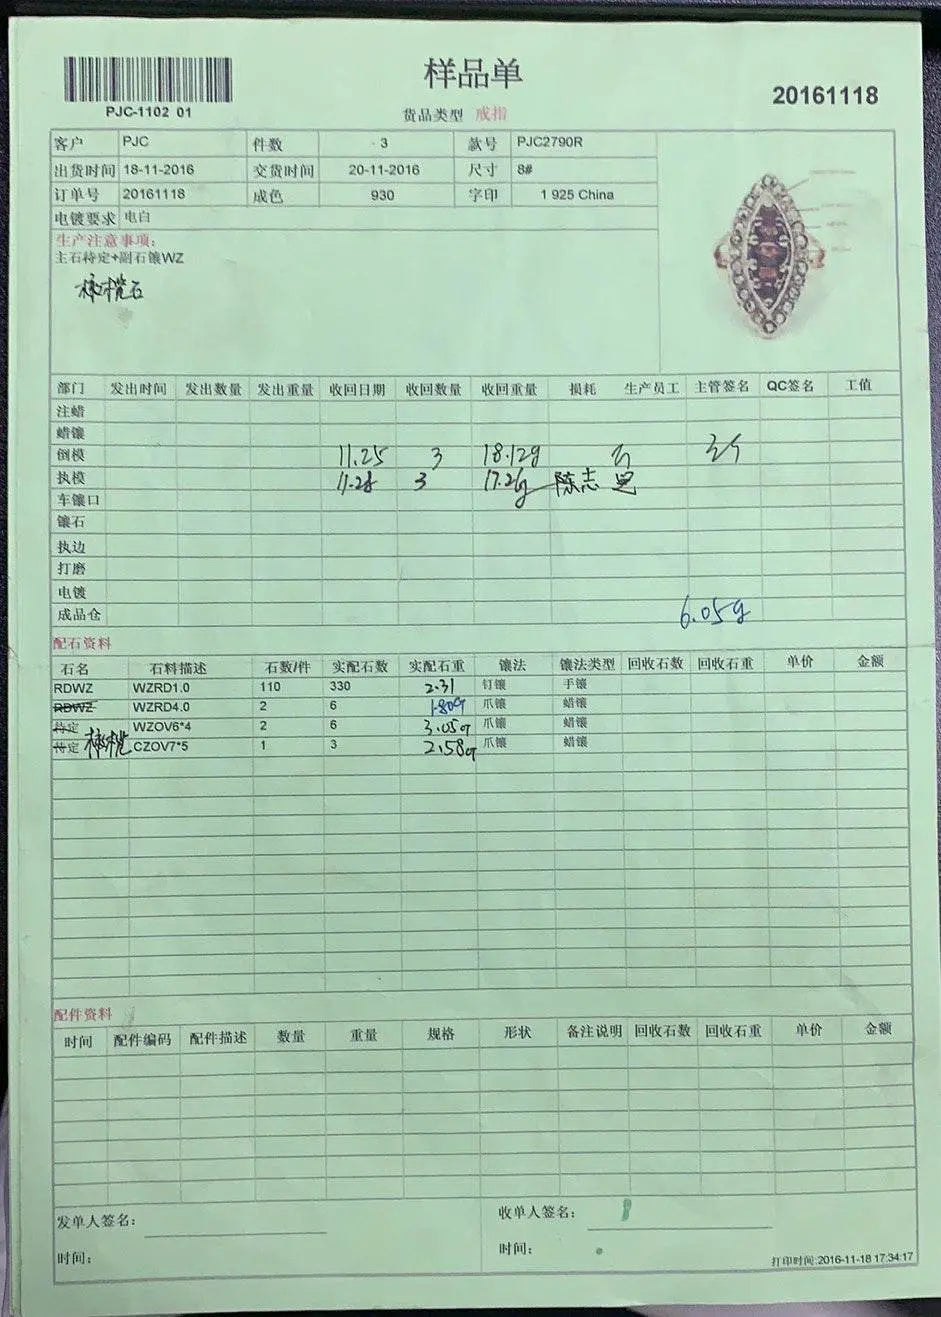 样品单
20161118
PJC-1102 01
货品类型 戒指
客户 PJC 件数 3 款号 PJC2790R
出货时间 18-11-2016 交货时间 20-11-2016 尺寸 8#
订单号 20161118 成色 930 字印 1 925 China
电镀要求 电白
生产注意事项:
主石待定+副石镶WZ
橄榄石
部门 发出时间 发出数量 发出重量 收回日期 收回数量 收回重量 损耗 生产员工 主管签名 QC签名 工值
注蜡
蜡镶
倒模 11.25 3 18.12g
执模 11.28 3 17.26g 陈志
车镶口
镶石
执边
打磨
电镀
成品仓 6.05g
配石资料
石名 石料描述 石数/件 实配石数 实配石重 镶法 镶法类型 回收石数 回收石重 单价 金额
RDWZ WZRD1.0 110 330 2.31 钉镶 手镶
RDWZ WZRD4.0 2 6 1.80g 爪镶 蜡镶
待定 WZOV6*4 2 6 3.05g 爪镶 蜡镶
待定 橄榄 CZOV7*5 1 3 2.58g 爪镶 蜡镶
配件资料
时间 配件编码 配件描述 数量 重量 规格 形状 备注说明 回收石数 回收石重 单价 金额
发单人签名: 收单人签名:
时间: 时间:
打印时间:2016-11-18 17:34:17